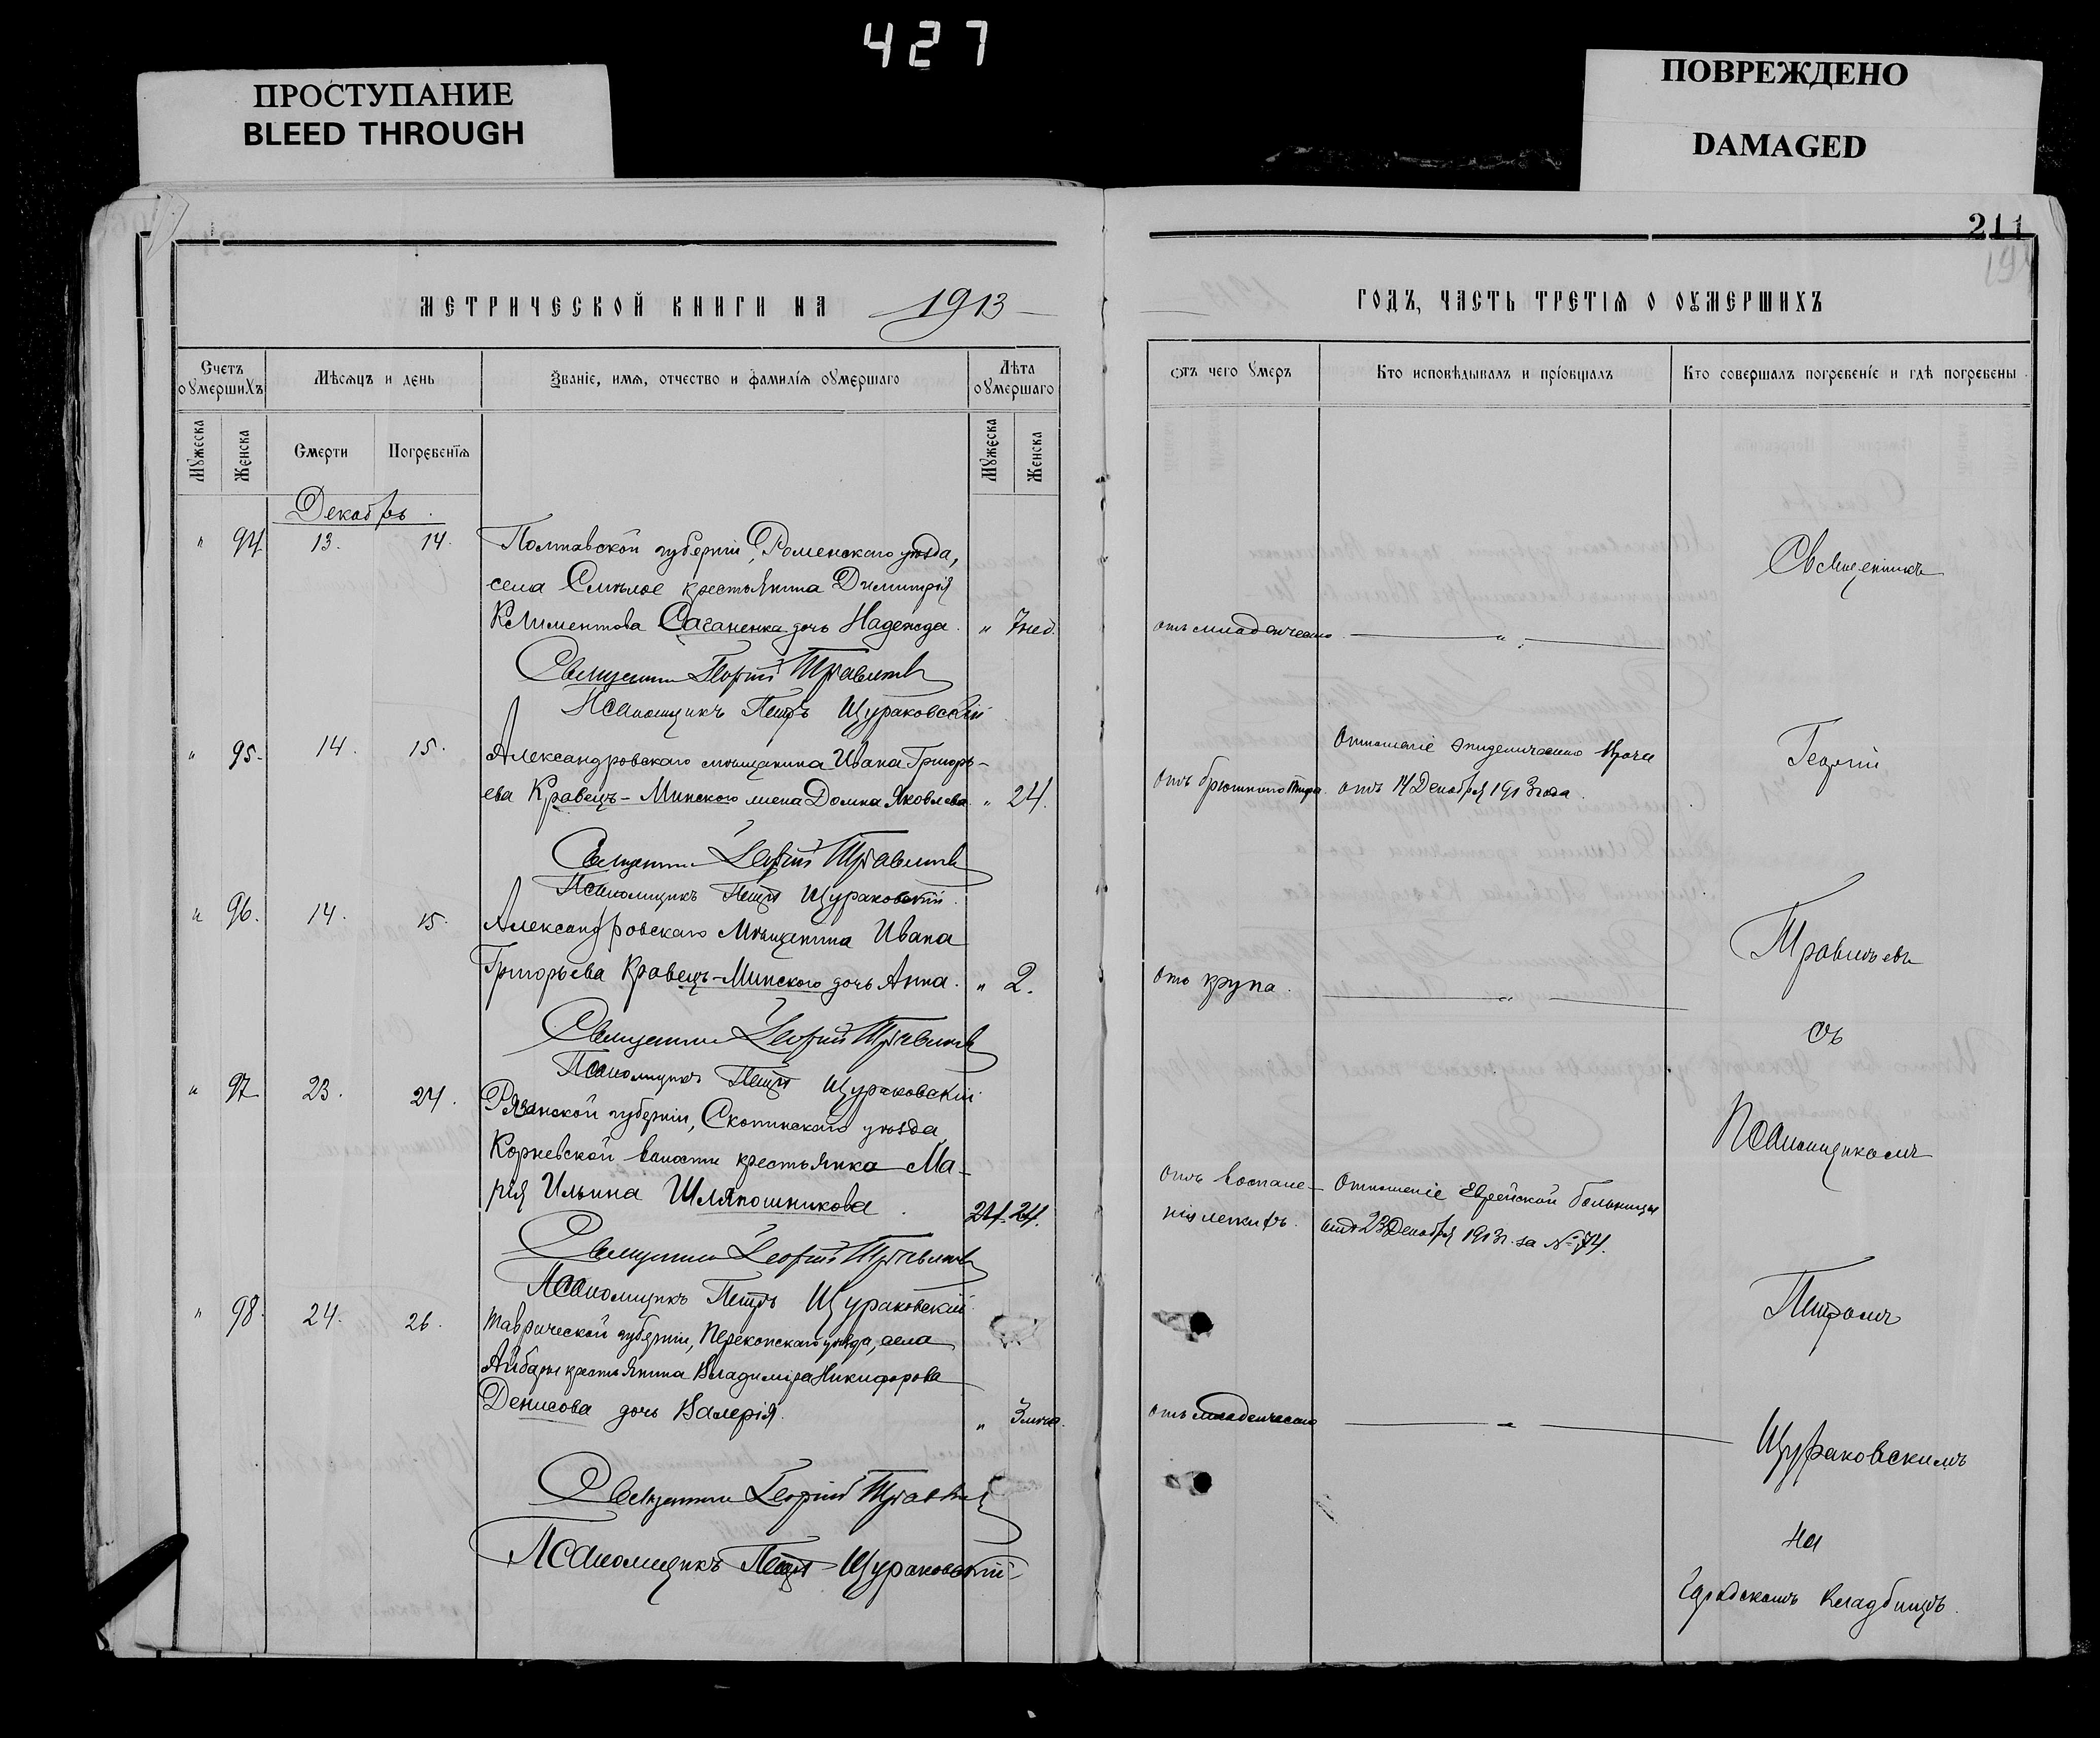 427
ПРОСТУПАНИЕ
BLEED THROUGH
ПОВРЕЖДЕНО
DAMAGED
211
МЕТРИЧЕСКОЙ КНИГИ НА 1913
ГОДЪ, ЧАСТЬ ТРЕТІЯ О ОУМЕРШИХЪ
Счетъ оумершихъ
Мѣсяцъ и день
Званіе, имя, отчество и фамилія оумершаго
Лѣта оумершаго
Отъ чего умеръ
Кто исповѣдывалъ и пріобщалъ
Кто совершалъ погребеніе и гдѣ погребены
Мужеска
Женска
Смерти
Погребенія
Мужеска
Женска
Декабрь.
" 94 13. 14. Полтавской губерніи, Роменскаго уѣзда,
села Смѣлое крестьянина Димитрія
Климентова Саганенка дочь Надежда. " 7 нед. отъ младенческаго "
Священникъ Георгій Травинъ
Псаломщикъ Петръ Щураковскій
" 95. 14. 15. Александровскаго мѣщанина Ивана Григорь-
ева Кравецъ-Минскаго жена Домна Яковлева. " 24. Отъ брюшного тифа. Отношеніе эпидемическаго врача
отъ 14 Декабря 1913 года.
Священникъ Георгій
Псаломщикъ Петръ Щураковскій
" 96. 14. 15. Александровскаго Мѣщанина Ивана
Григорьева Кравецъ-Минскаго дочь Анна. " 2. отъ крупа. "
Священникъ Георгій
Псаломщикъ Петръ Щураковскій
" 97 23. 24. Рязанской губерніи, Скопинскаго уѣзда,
Корневской волости крестьянка Ма-
рія Ильина Шляпошникова. 24. 24. Отъ воспале-
нія легкихъ. Отношеніе Еврейской больницы
отъ 23 Декабря 1913 г. за № 74.
Священникъ Георгій
Псаломщикъ Петръ Щураковскій
" 98. 24. 26. Таврической губерніи, Перекопскаго уѣзда, села
Айбары крестьянина Владиміра Никифорова
Денисова дочь Валерія. " 3 мѣс. отъ младенческаго "
Священникъ Георгій
Псаломщикъ Петръ Щураковскій
Священникъ
Георгій
съ
Псаломщикомъ
Петромъ
Щураковскимъ
на
Городскомъ кладбищѣ.